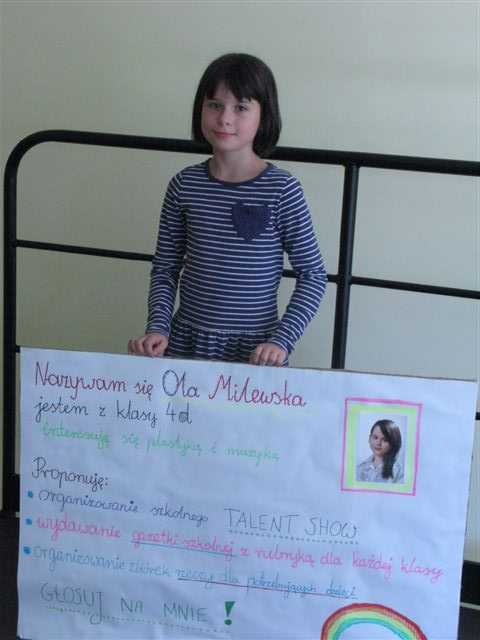 Nazywam się Ola Milewska
jestem z klasy 4d
interesuję się plastyką i muzyką
Proponuję:
• organizowanie szkolnego TALENT SHOW
• wydawanie gazetki szkolnej z rubryką dla każdej klasy
• organizowanie zbiórek rzeczy dla potrzebujących dzieci
GŁOSUJ NA MNIE!